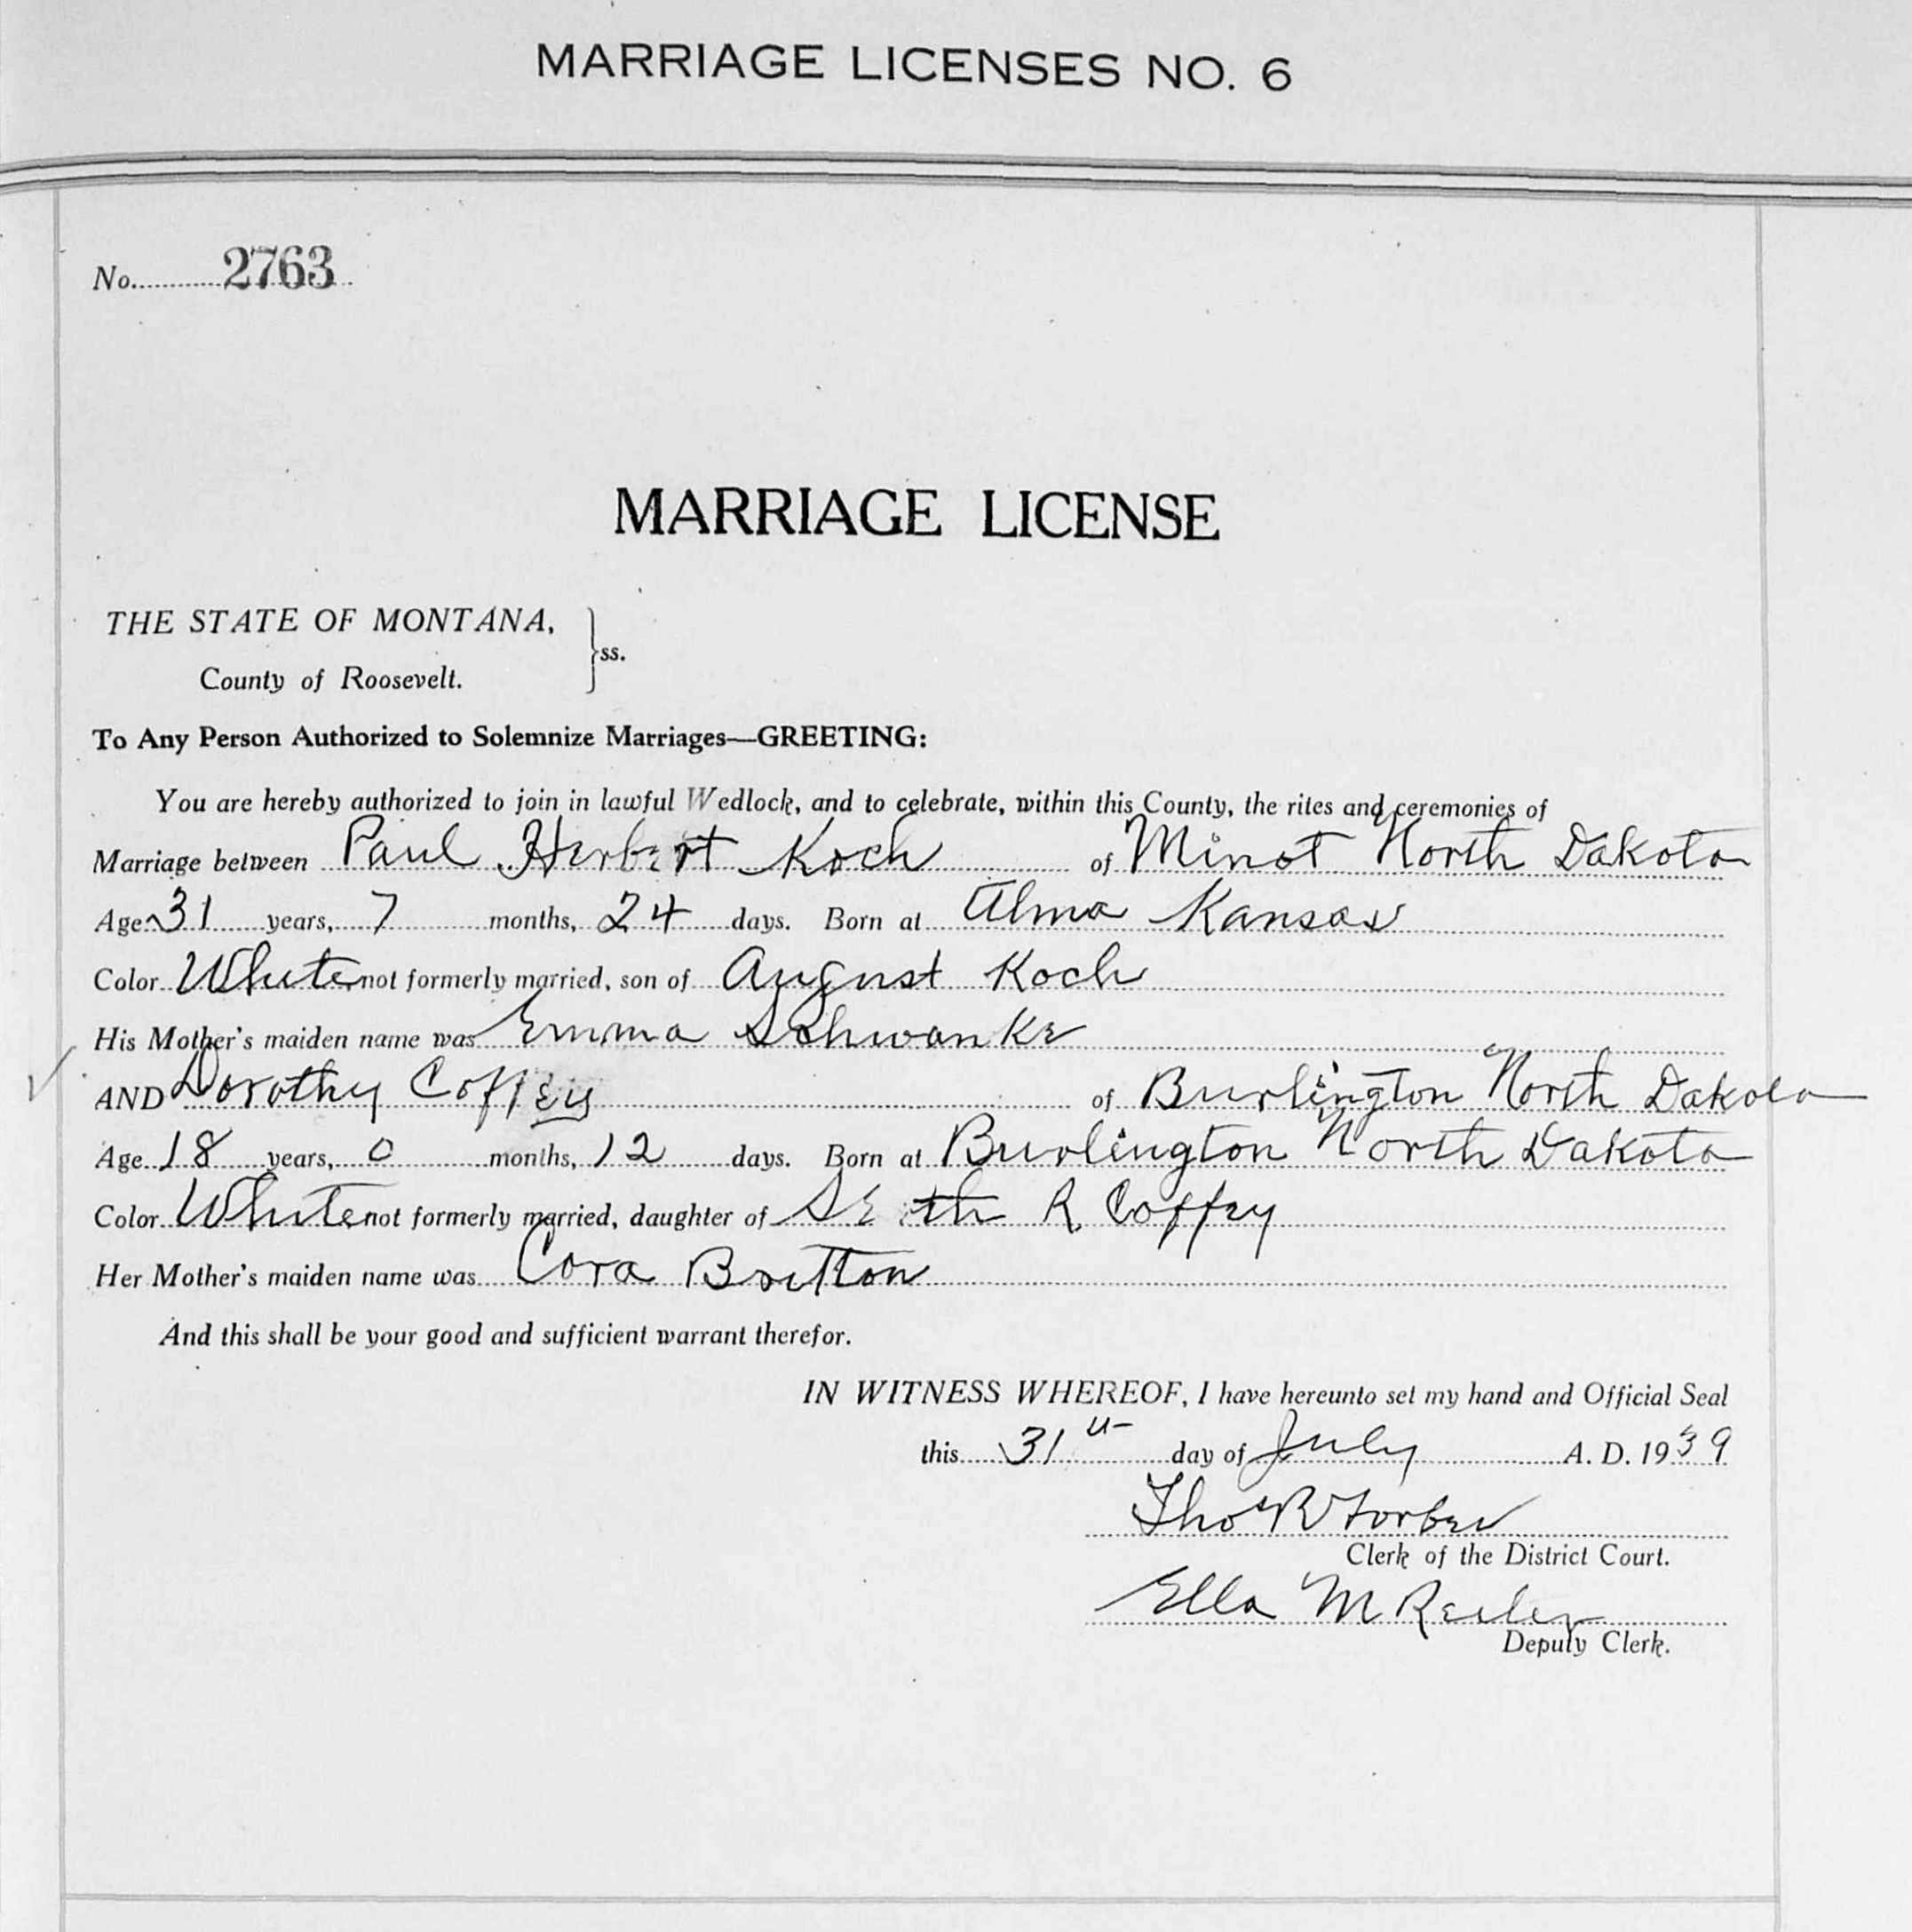 MARRIAGE LICENSES NO. 6
No. 2763
MARRIAGE LICENSE
THE STATE OF MONTANA,
ss.
County of Roosevelt.
To Any Person Authorized to Solemnize Marriages—GREETING:
You are hereby authorized to join in lawful Wedlock, and to celebrate, within this County, the rites and ceremonies of
Marriage between Paul Herbert Koch of Minot North Dakota
Age 31 years, 7 months, 24 days. Born at Alma Kansas
Color White not formerly married, son of August Koch
His Mother's maiden name was Emma Schwanke
AND Dorothy Coffey of Burlington North Dakota
Age 18 years, 0 months, 12 days. Born at Burlington North Dakota
Color White not formerly married, daughter of Seth R Coffey
Her Mother's maiden name was Cora Britton
And this shall be your good and sufficient warrant therefor.
IN WITNESS WHEREOF, I have hereunto set my hand and Official Seal
this 31 day of July A. D. 1939
Thos R Forbes
Clerk of the District Court.
Ella M Reiley
Deputy Clerk.